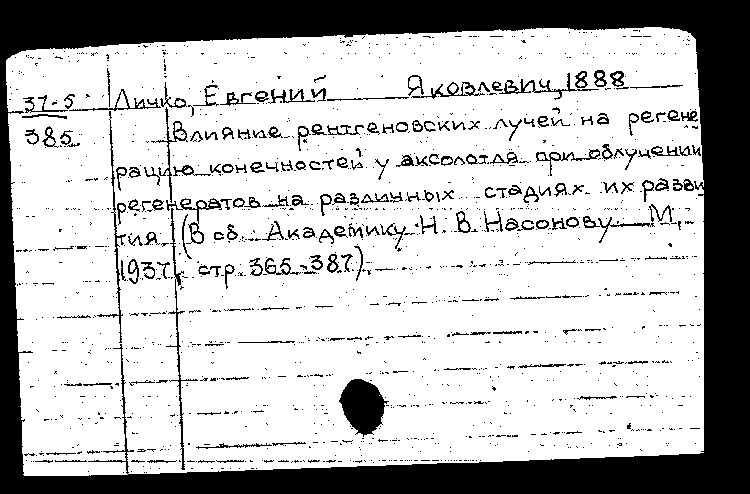 37-5 Личко, Евгений Яковлевич, 1888
385 Влияние рентгеновских лучей на регене
рацию конечностей у аксолотля при облучении
регенератов на различных стадиях их разви
тия (В сб. Академику Н. В. Насонову М,
1937, стр. 365-387).